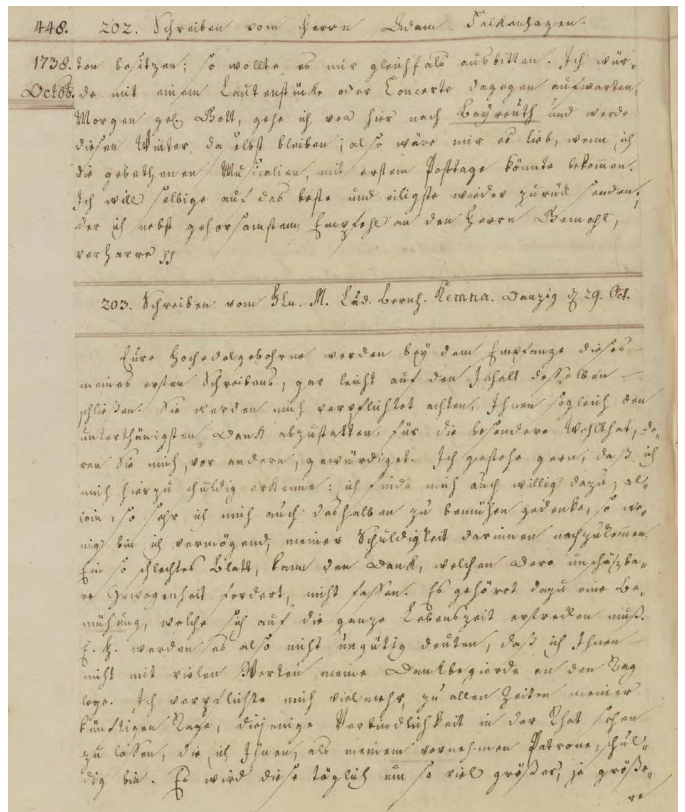 448. 202. Schreiben vom Herrn Adam Falkenhagen.
1738. ten besitzen; so wollte es mir gleichfals ausbitten. Ich wür-
Octob. de mit einem Lautenstücke oder Concerte dagegen aufwarten.
Morgen gel. Gott, gehe ich von hier nach Bayreuth und werde
diesen Winter daselbst bleiben; also wäre mir es lieb, wenn ich
die gebethenen Musicalien, mit erstem Posttage könnte bekommen.
Ich will selbige auf das beste und eiligste wieder zurück senden,
der ich nebst gehorsamstem Empfehl an den Herrn
verharre
203. Schreiben vom Hln. M. Lud. Bernh. Kemna. Danzig d 29. Oct.
Eure Hochedelgebohrne werden bey dem Empfange dieses
meines ersten Schreibens, gar leicht auf den Inhalt desselben
schließen. Sie werden mich verpflichtet achten, Ihnen sogleich den
unterthänigsten Dank abzustatten, für die besondere Wohlthat, de-
ren Sie mich, vor andern, gewürdiget. Ich gestehe gern, daß ich
mich hierzu schuldig erkenne: ich finde mich auch willig dazu; al-
lein, so sehr ich mich auch deshalben zu bemühen gedenke, so we-
nig bin ich vermögend, meiner Schuldigkeit darinnen nachzukommen.
Ein so schlechtes Blatt, kann den Dank, welchen Dero unschäzba-
re Gewogenheit fordert, nicht fassen. Es gehöret dazu eine Be-
mühung, welche sich auf die ganze Lebenszeit erstrecken muß.
E. H. werden es also nicht ungütig deuten, daß ich Ihnen
nicht mit vielen Worten meine Dankbegierde an den Tag
lege. Ich verpflichte mich vielmehr, zu allen Zeiten meiner
künftigen Tage, diejenige Verbindlichkeit in der That sehen
zu lassen, die ich Ihnen, als meinem vornehmen Patrone, schul-
dig bin. Es wird diese täglich um so viel größer, je größe-
re